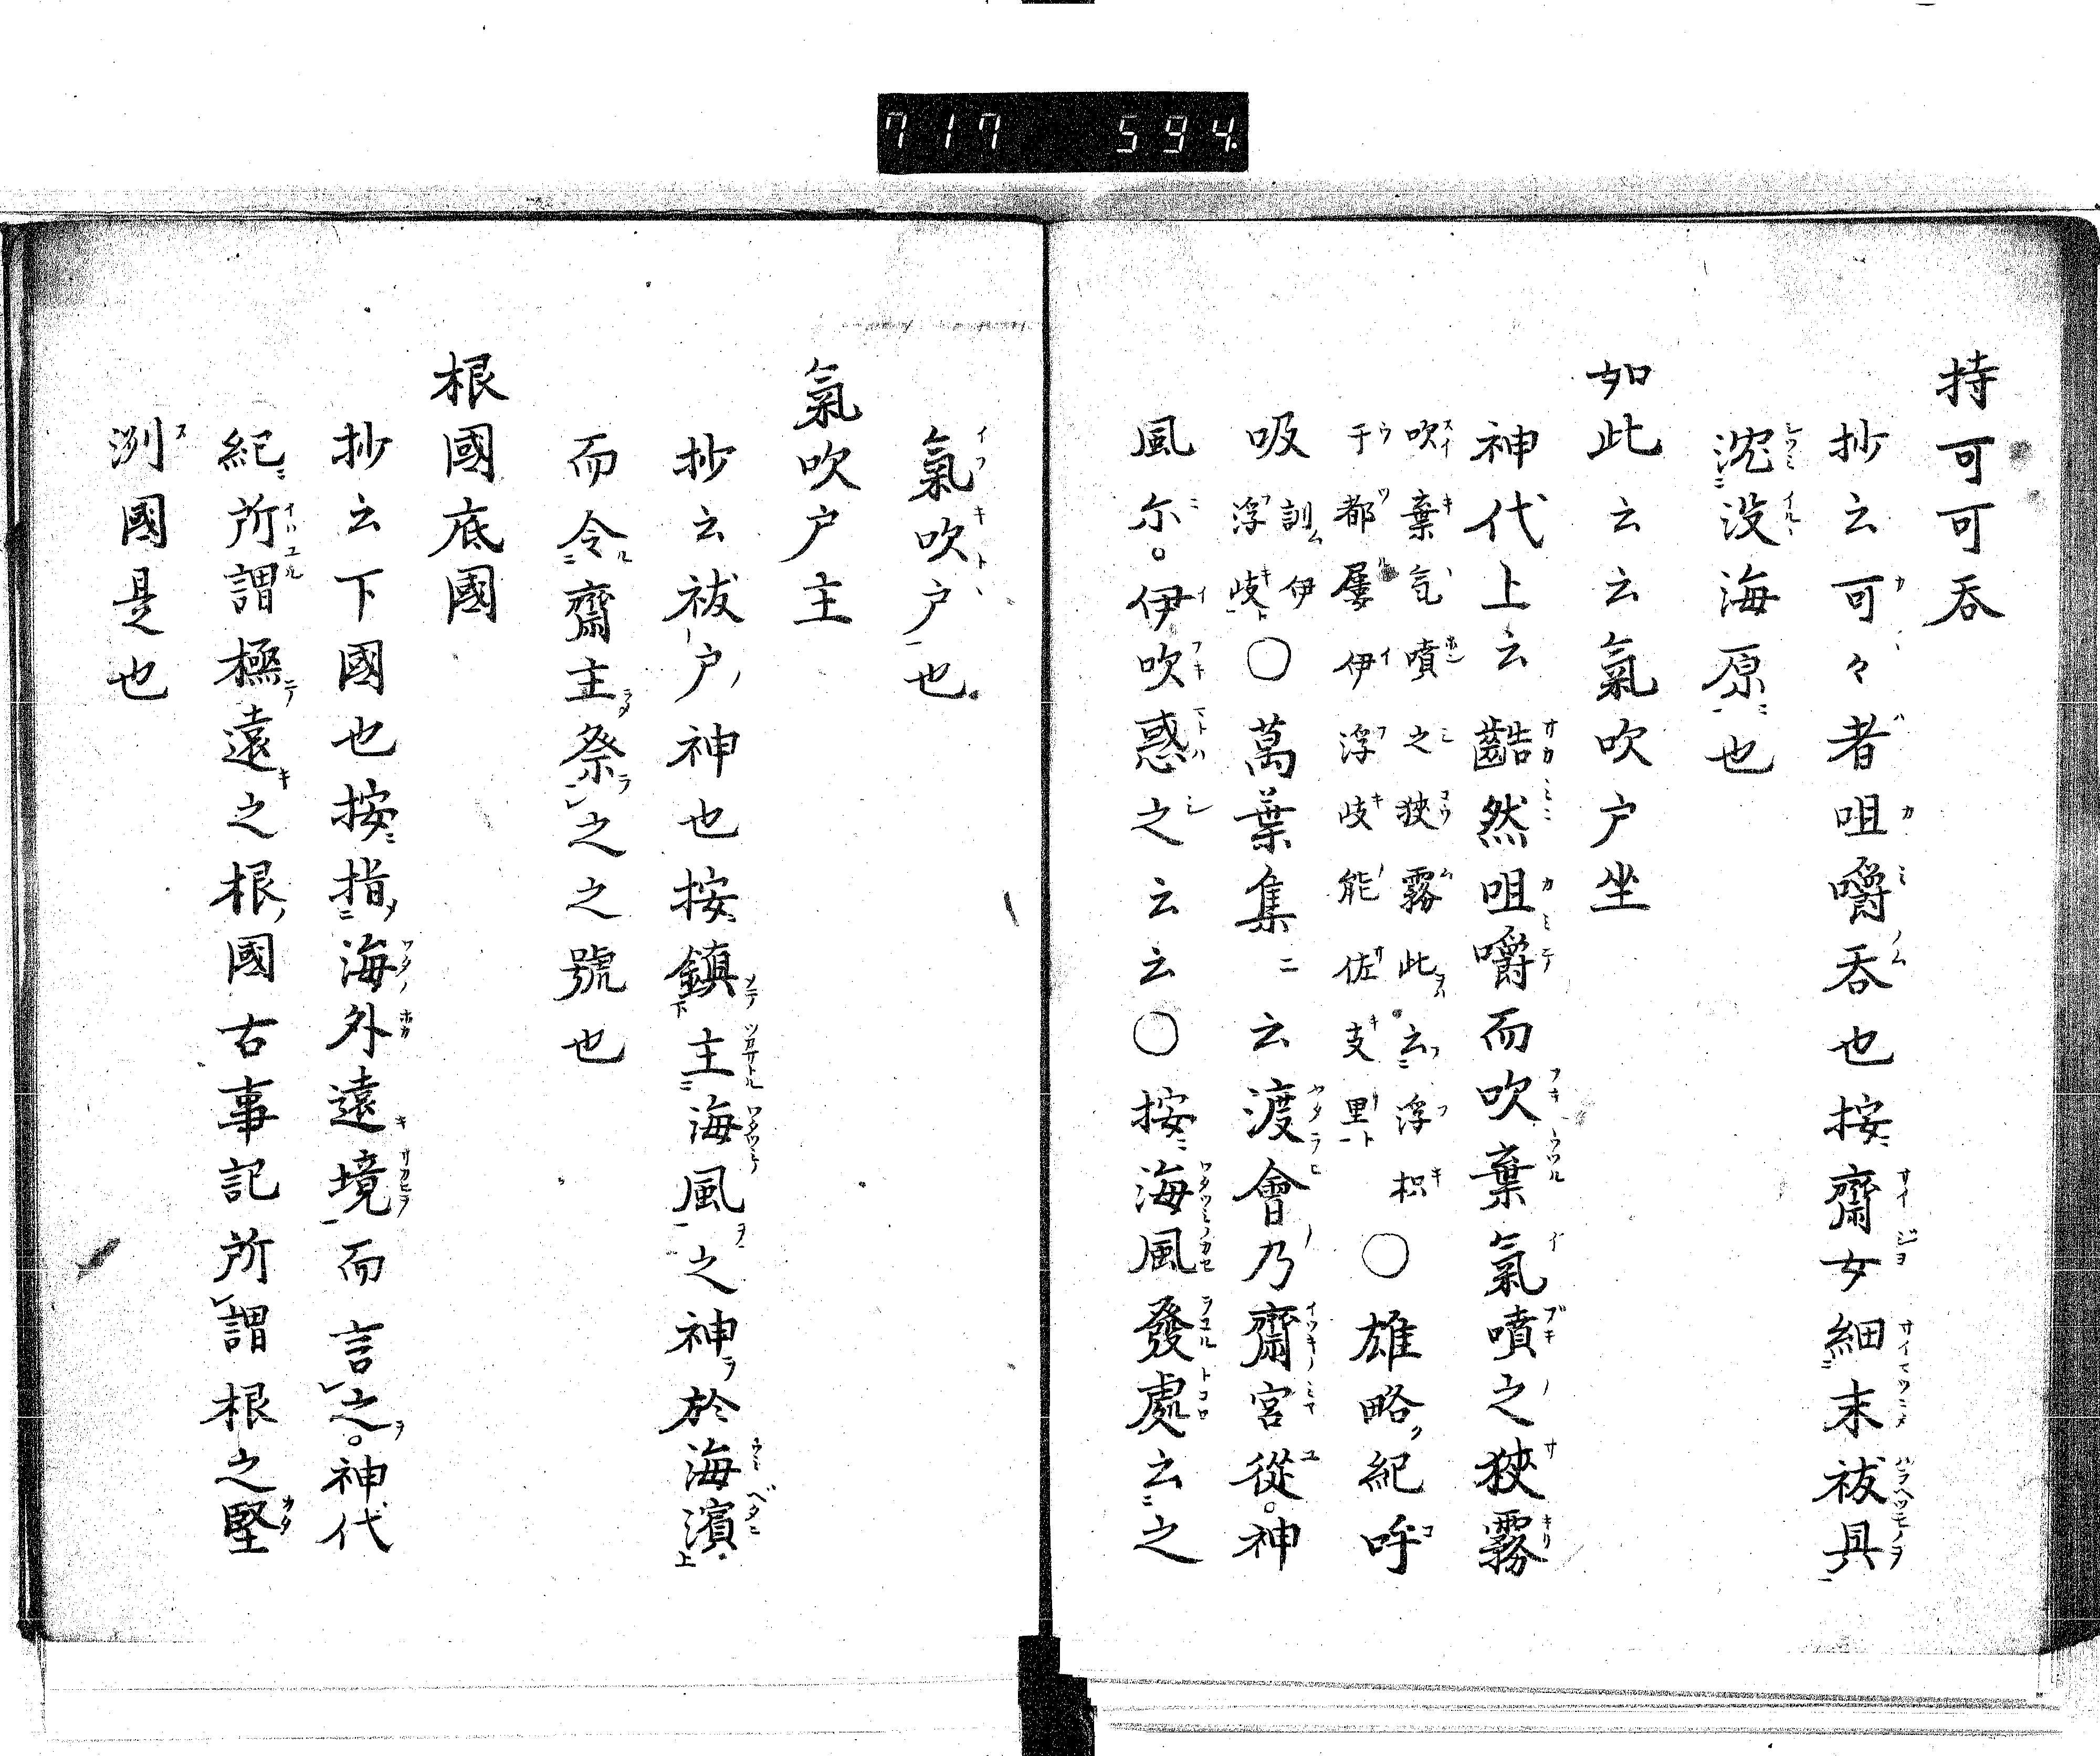 717 594.
持可可吞
抄云可々者咀嚼吞也按齋女細末祓具
沈没海原也
如此云云氣吹户坐
神代上云齰然咀嚼而吹棄氣噴之狹霧
吹棄气噴之狹霧此云浮枳
于都屡伊浮岐能佐支里
○雄略紀呼
吸
訓伊
浮岐
○萬葉集ニ云渡會乃齋宮從。神
風尓。伊吹惑之云云○按海風發處云之
氣吹户也
氣吹户主
抄云祓户神也按鎮主海風之神於海濱
而令齋主祭之之號也
根國底國
抄云下國也按指海外遠境而言之。神代
紀所謂極遠之根國古事記所謂根之堅
洲國是也